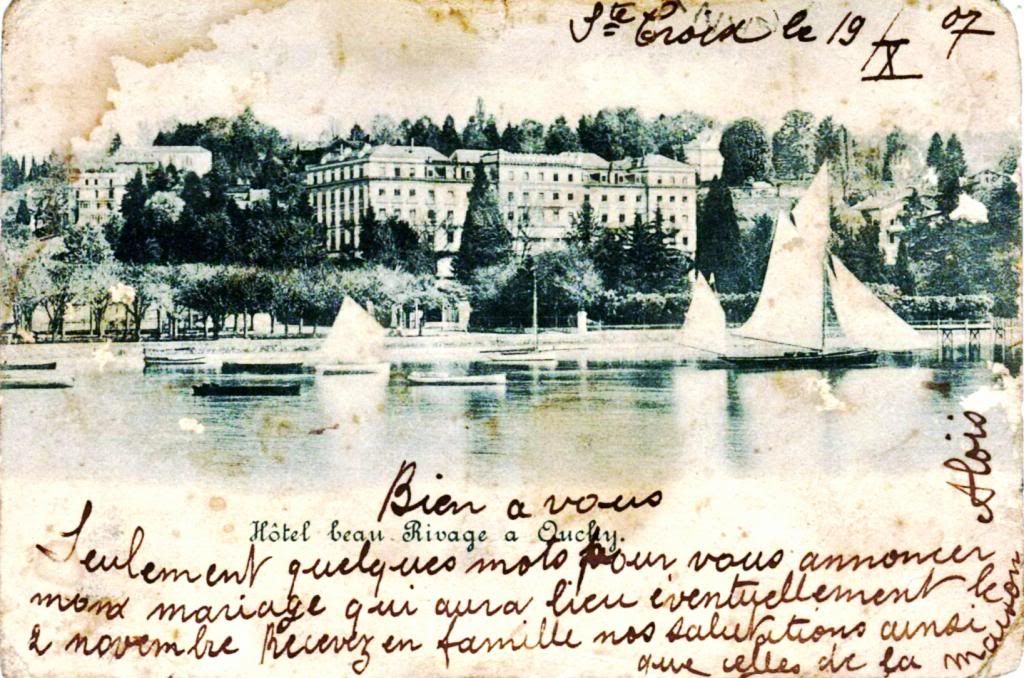 Ste Croix le 19/X 07
Bien a vous
Hôtel beau Rivage a Ouchy.
Seulement quelques mots pour vous annoncer
mon mariage qui aura lieu éventuellement le
2 novembre Recevez en famille nos salutations ainsi
que celles de la maison
Aloïs